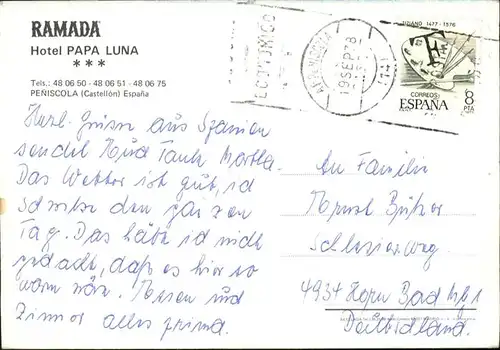 RAMADA
Hotel PAPA LUNA
★ ★ ★
Tels.: 48 06 50 - 48 06 51 - 48 06 75
PEÑISCOLA (Castellón) España
TIZIANO 1477 - 1576
CORREOS
ESPAÑA
8
PTA
19 SEP 78
Herzl. Grüsse aus Spanien
sendet Tante Martha.
Das Wetter ist gut, ich
schwitze den ganzen
Tag. Das hätte ich nicht
gedacht, daß es hier so
warm wär. Essen und
Zimmer alles prima.
An Familie
Schlesierweg
4934 Horn Bad
Deutschland.